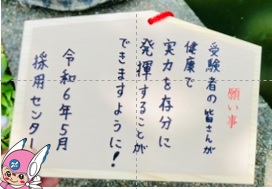 願い事
受験者の皆さんが
健康で
実力を存分に
発揮することが
できますように!
令和6年5月
採用センター